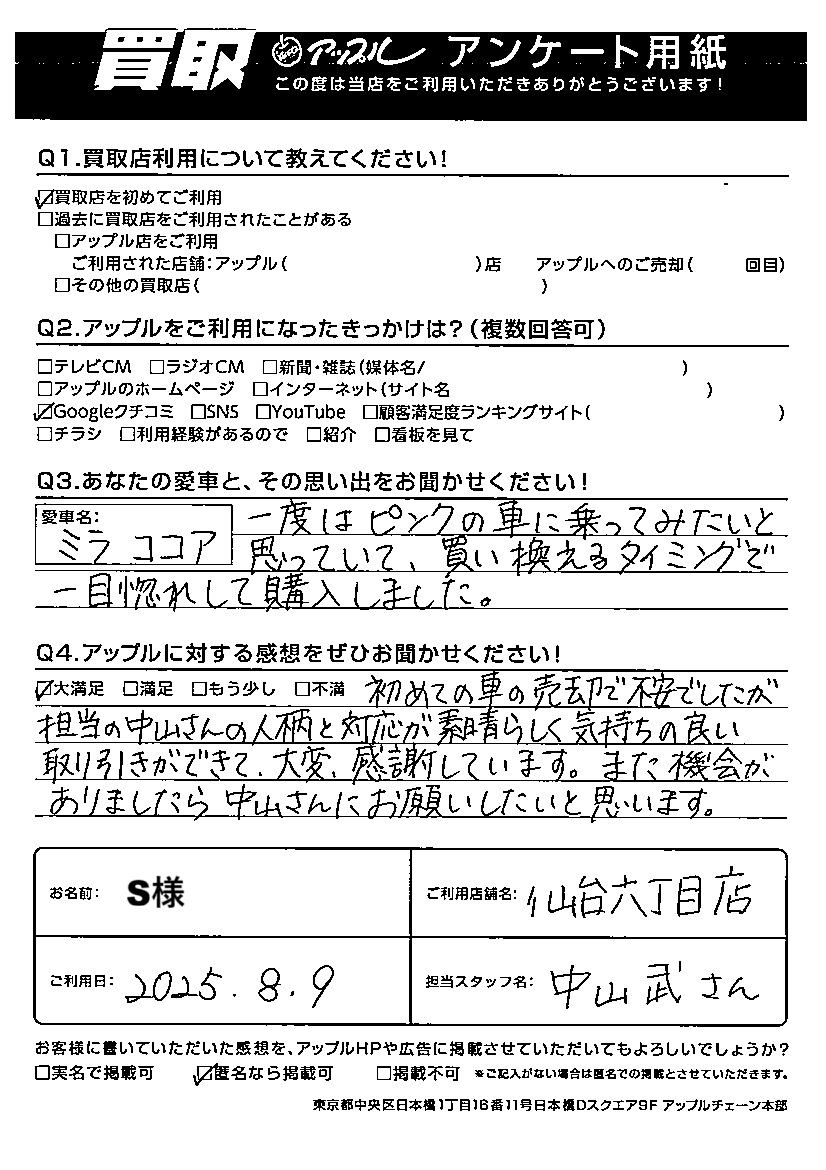 買取 アップル アンケート用紙
この度は当店をご利用いただきありがとうございます!
Q1.買取店利用について教えてください!
☑買取店を初めてご利用
□過去に買取店をご利用されたことがある
□アップル店をご利用
ご利用された店舗:アップル( )店 アップルへのご売却( 回目)
□その他の買取店( )
Q2.アップルをご利用になったきっかけは?(複数回答可)
□テレビCM □ラジオCM □新聞・雑誌(媒体名/ )
□アップルのホームページ □インターネット(サイト名 )
☑Googleクチコミ □SNS □YouTube □顧客満足度ランキングサイト( )
□チラシ □利用経験があるので □紹介 □看板を見て
Q3.あなたの愛車と、その思い出をお聞かせください!
愛車名: ミラ ココア
一度はピンクの車に乗ってみたいと
思っていて、買い換えるタイミングで
一目惚れして購入しました。
Q4.アップルに対する感想をぜひお聞かせください!
☑大満足 □満足 □もう少し □不満 初めての車の売却で不安でしたが
担当の中山さんの人柄と対応が素晴らしく気持ちの良い
取り引きができて、大変、感謝しています。また機会が
ありましたら中山さんにお願いしたいと思います。
お名前: S様 ご利用店舗名: 仙台六丁目店
ご利用日: 2025.8.9 担当スタッフ名: 中山武さん
お客様に書いていただいた感想を、アップルHPや広告に掲載させていただいてもよろしいでしょうか?
□実名で掲載可 ☑匿名なら掲載可 □掲載不可 ※ご記入がない場合は匿名での掲載とさせていただきます。
東京都中央区日本橋1丁目16番11号日本橋Dスクエア9F アップルチェーン本部